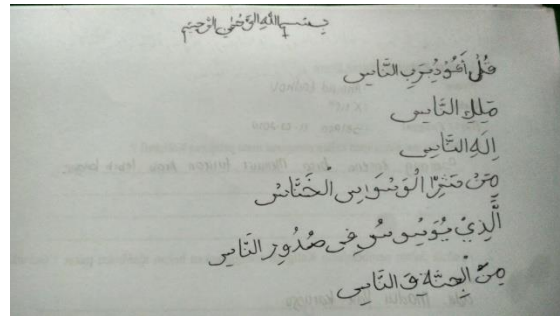 بسم الله الرحمن الرحيم
قل أعوذ برب الناس
ملك الناس
إله الناس
من شر الوسواس الخناس
الذي يوسوس في صدور الناس
من الجنة و الناس